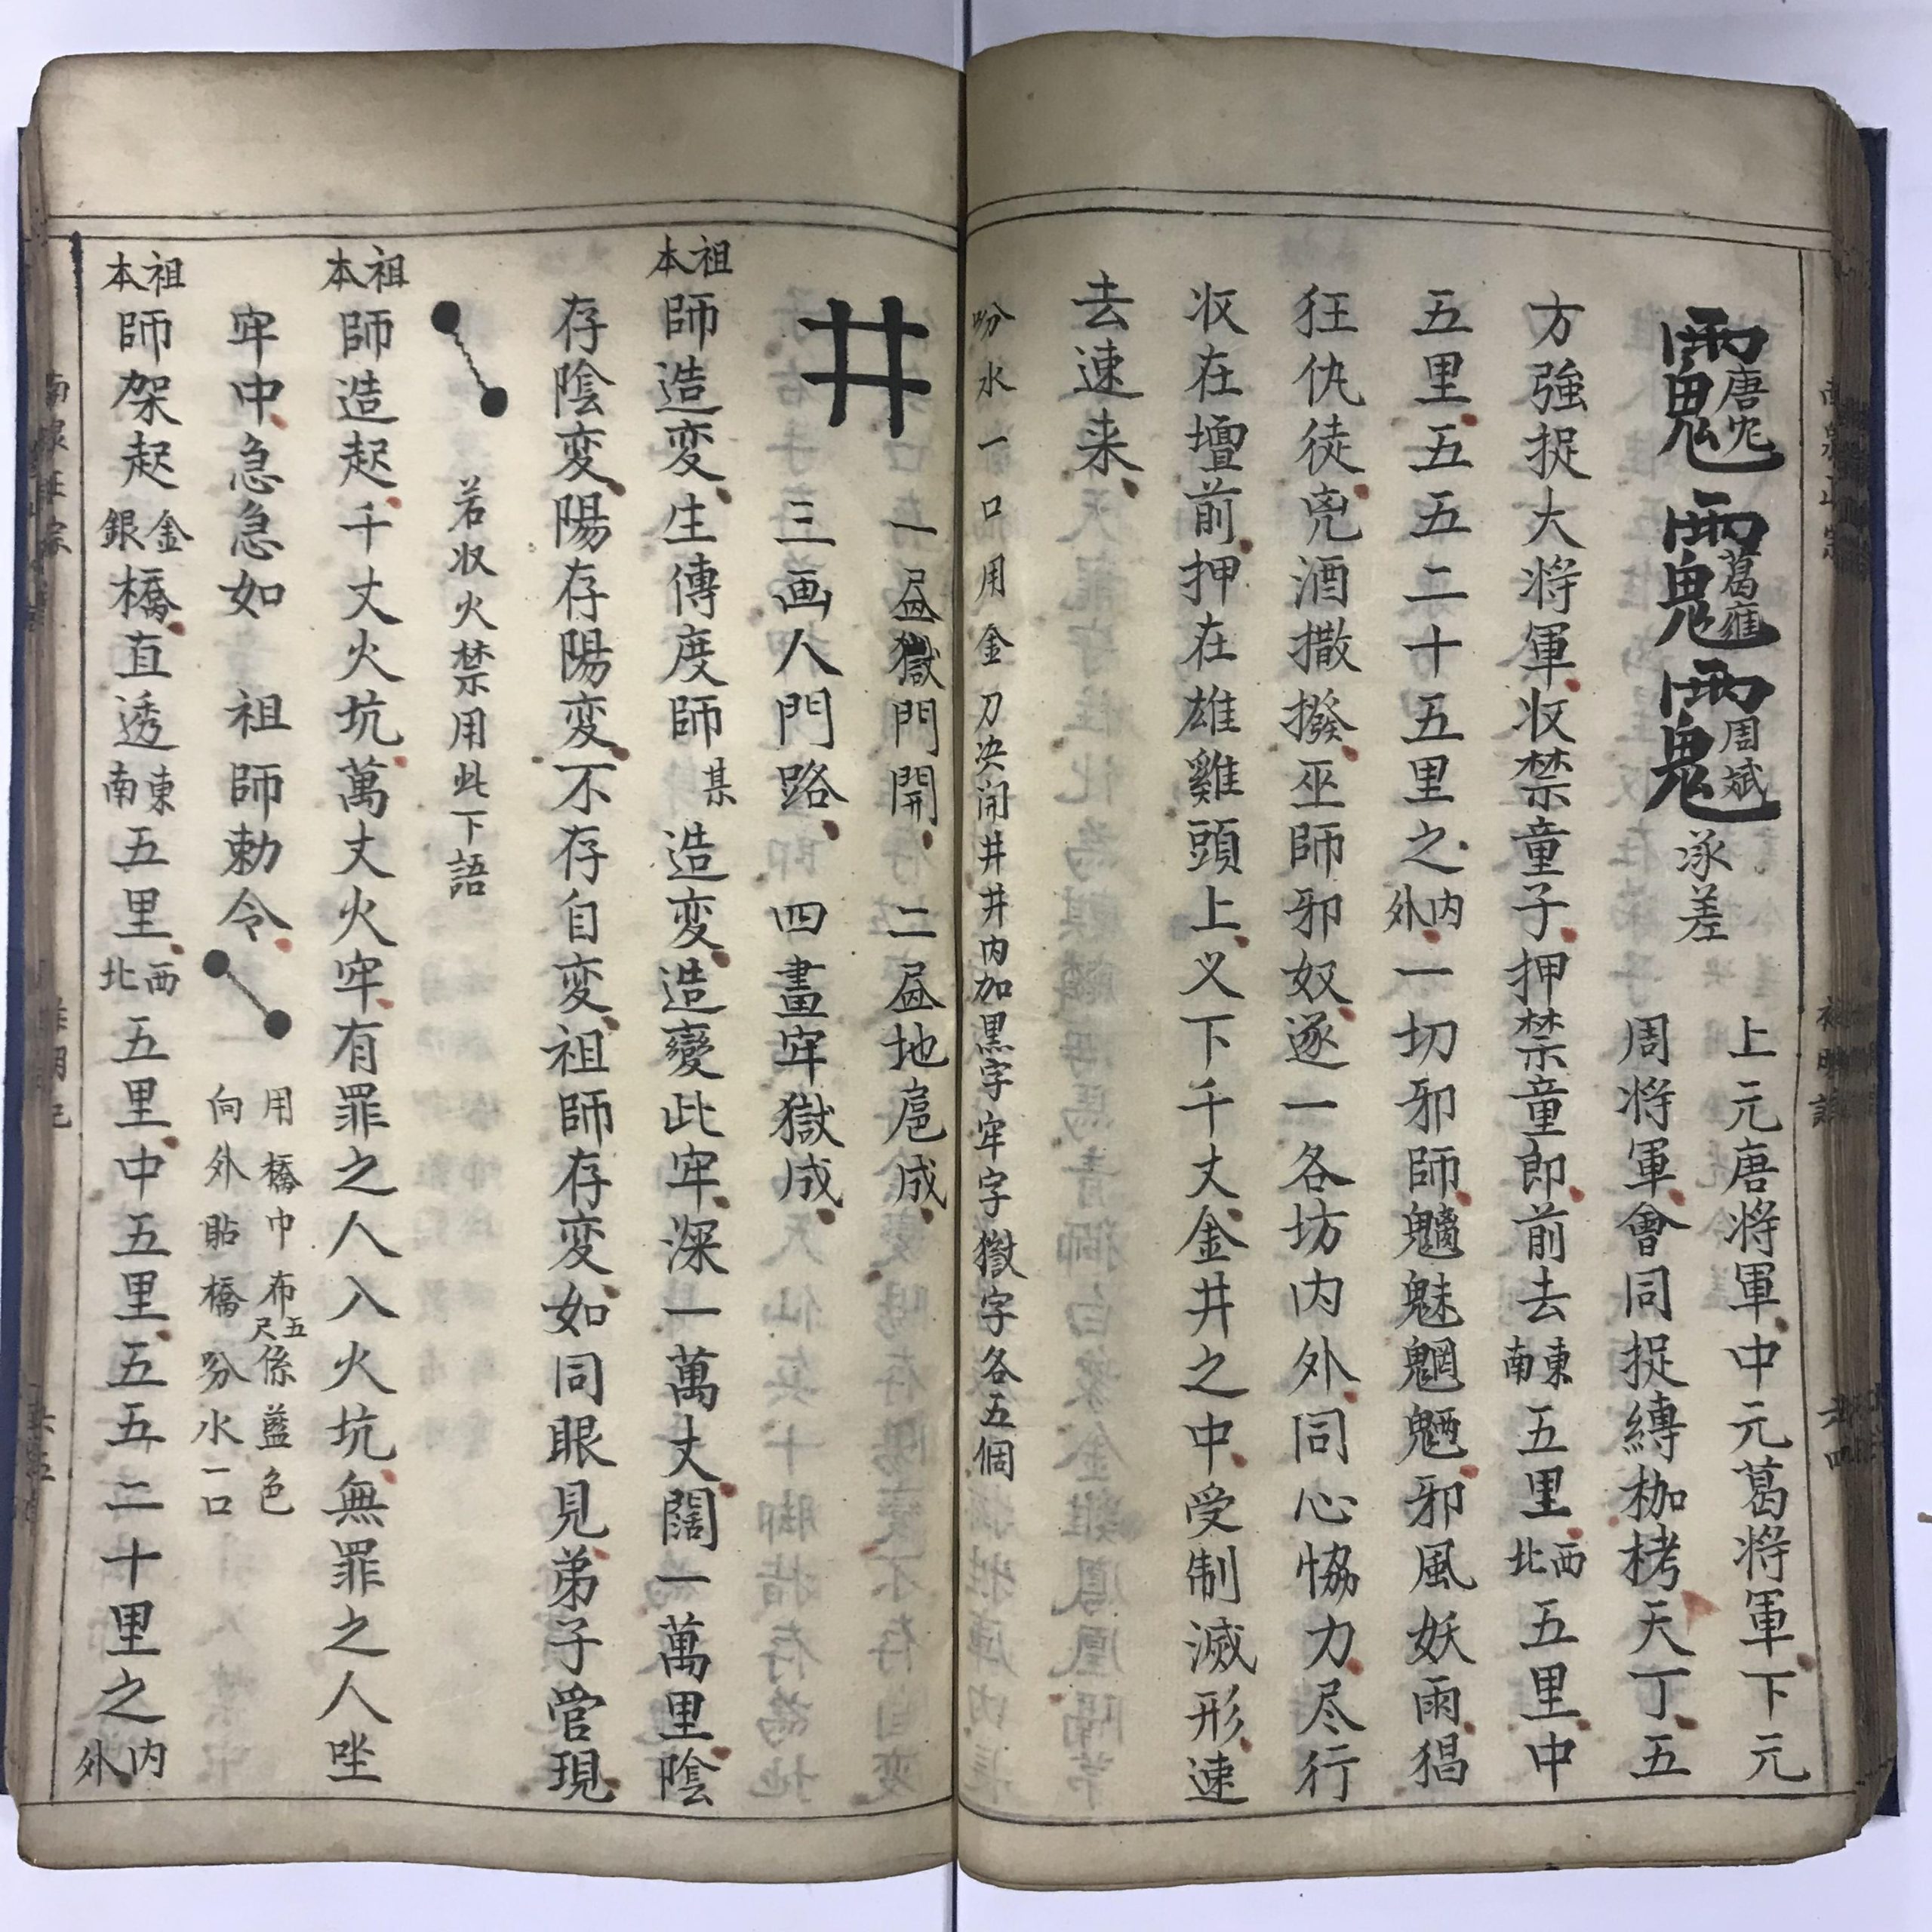 唐宄
葛雍
周斌
承差
上元唐將軍中元葛將軍下元
周將軍會同捉縛枷栲天丁五
方強捉大將軍收禁童子押禁童郎前去東南五里西北五里中
五里五五二十五里之内外一切邪師魑魅魍魎邪風妖雨猖
狂仇徒兇酒撒撥巫師邪奴逐一各坊内外同心恊力尽行
收在壇前押在雄雞頭上义下千丈金井之中受制滅形速
去速来
吩水一口用金刀决開井井内加黑字牢字獄字各五個
井
一畫獄門開 二畫地扈成
三画人門路 四畫牢獄成
祖本師造変生傳度師某造変造變此牢深一萬丈闊一萬里陰
存陰変陽存陽変不存自変祖師存変如同眼見弟子管現
若收火禁用此下語
祖本師造起千丈火坑萬丈火牢有罪之人入火坑無罪之人坐
牢中急急如 祖師勅令
用橋巾布五尺係藍色
向外貼橋吩水一口
祖本師架起金銀橋直透東南五里西北五里中五里五五二十里之内外